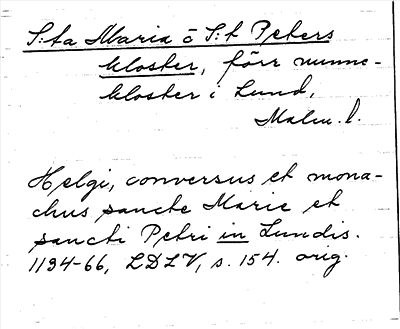 S:ta Maria o S:t Peters
kloster, förr nunne-
kloster i Lund,
Malm. l.
Helgi, conversus et mona-
chus sancte Marie et
sancti Petri in Lundis.
1134-66, LDLV, s. 154. orig.